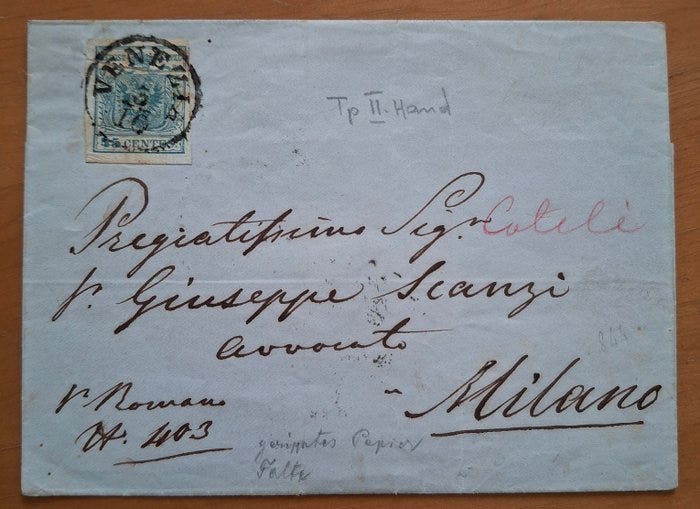 VENEZIA
45 CENTES
Tp II. Hand
Pregiatissimo Sig.r Coteli
Giuseppe Scanzi
avvocato
844
Milano
Romano
N. 403
geripptes Papier
Falte